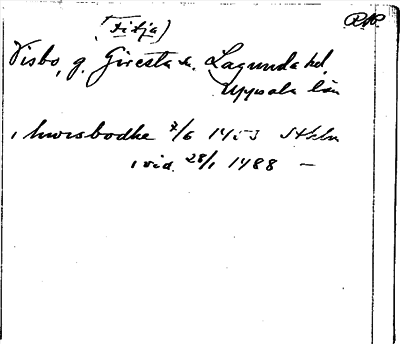 (Fitja) RAP.
Visbo, g. Giresta sn. Lagunda hd,
Uppsala län
i hwisbodhe 7/6 1453 Sthlm
i vid. 28/1 1488 —